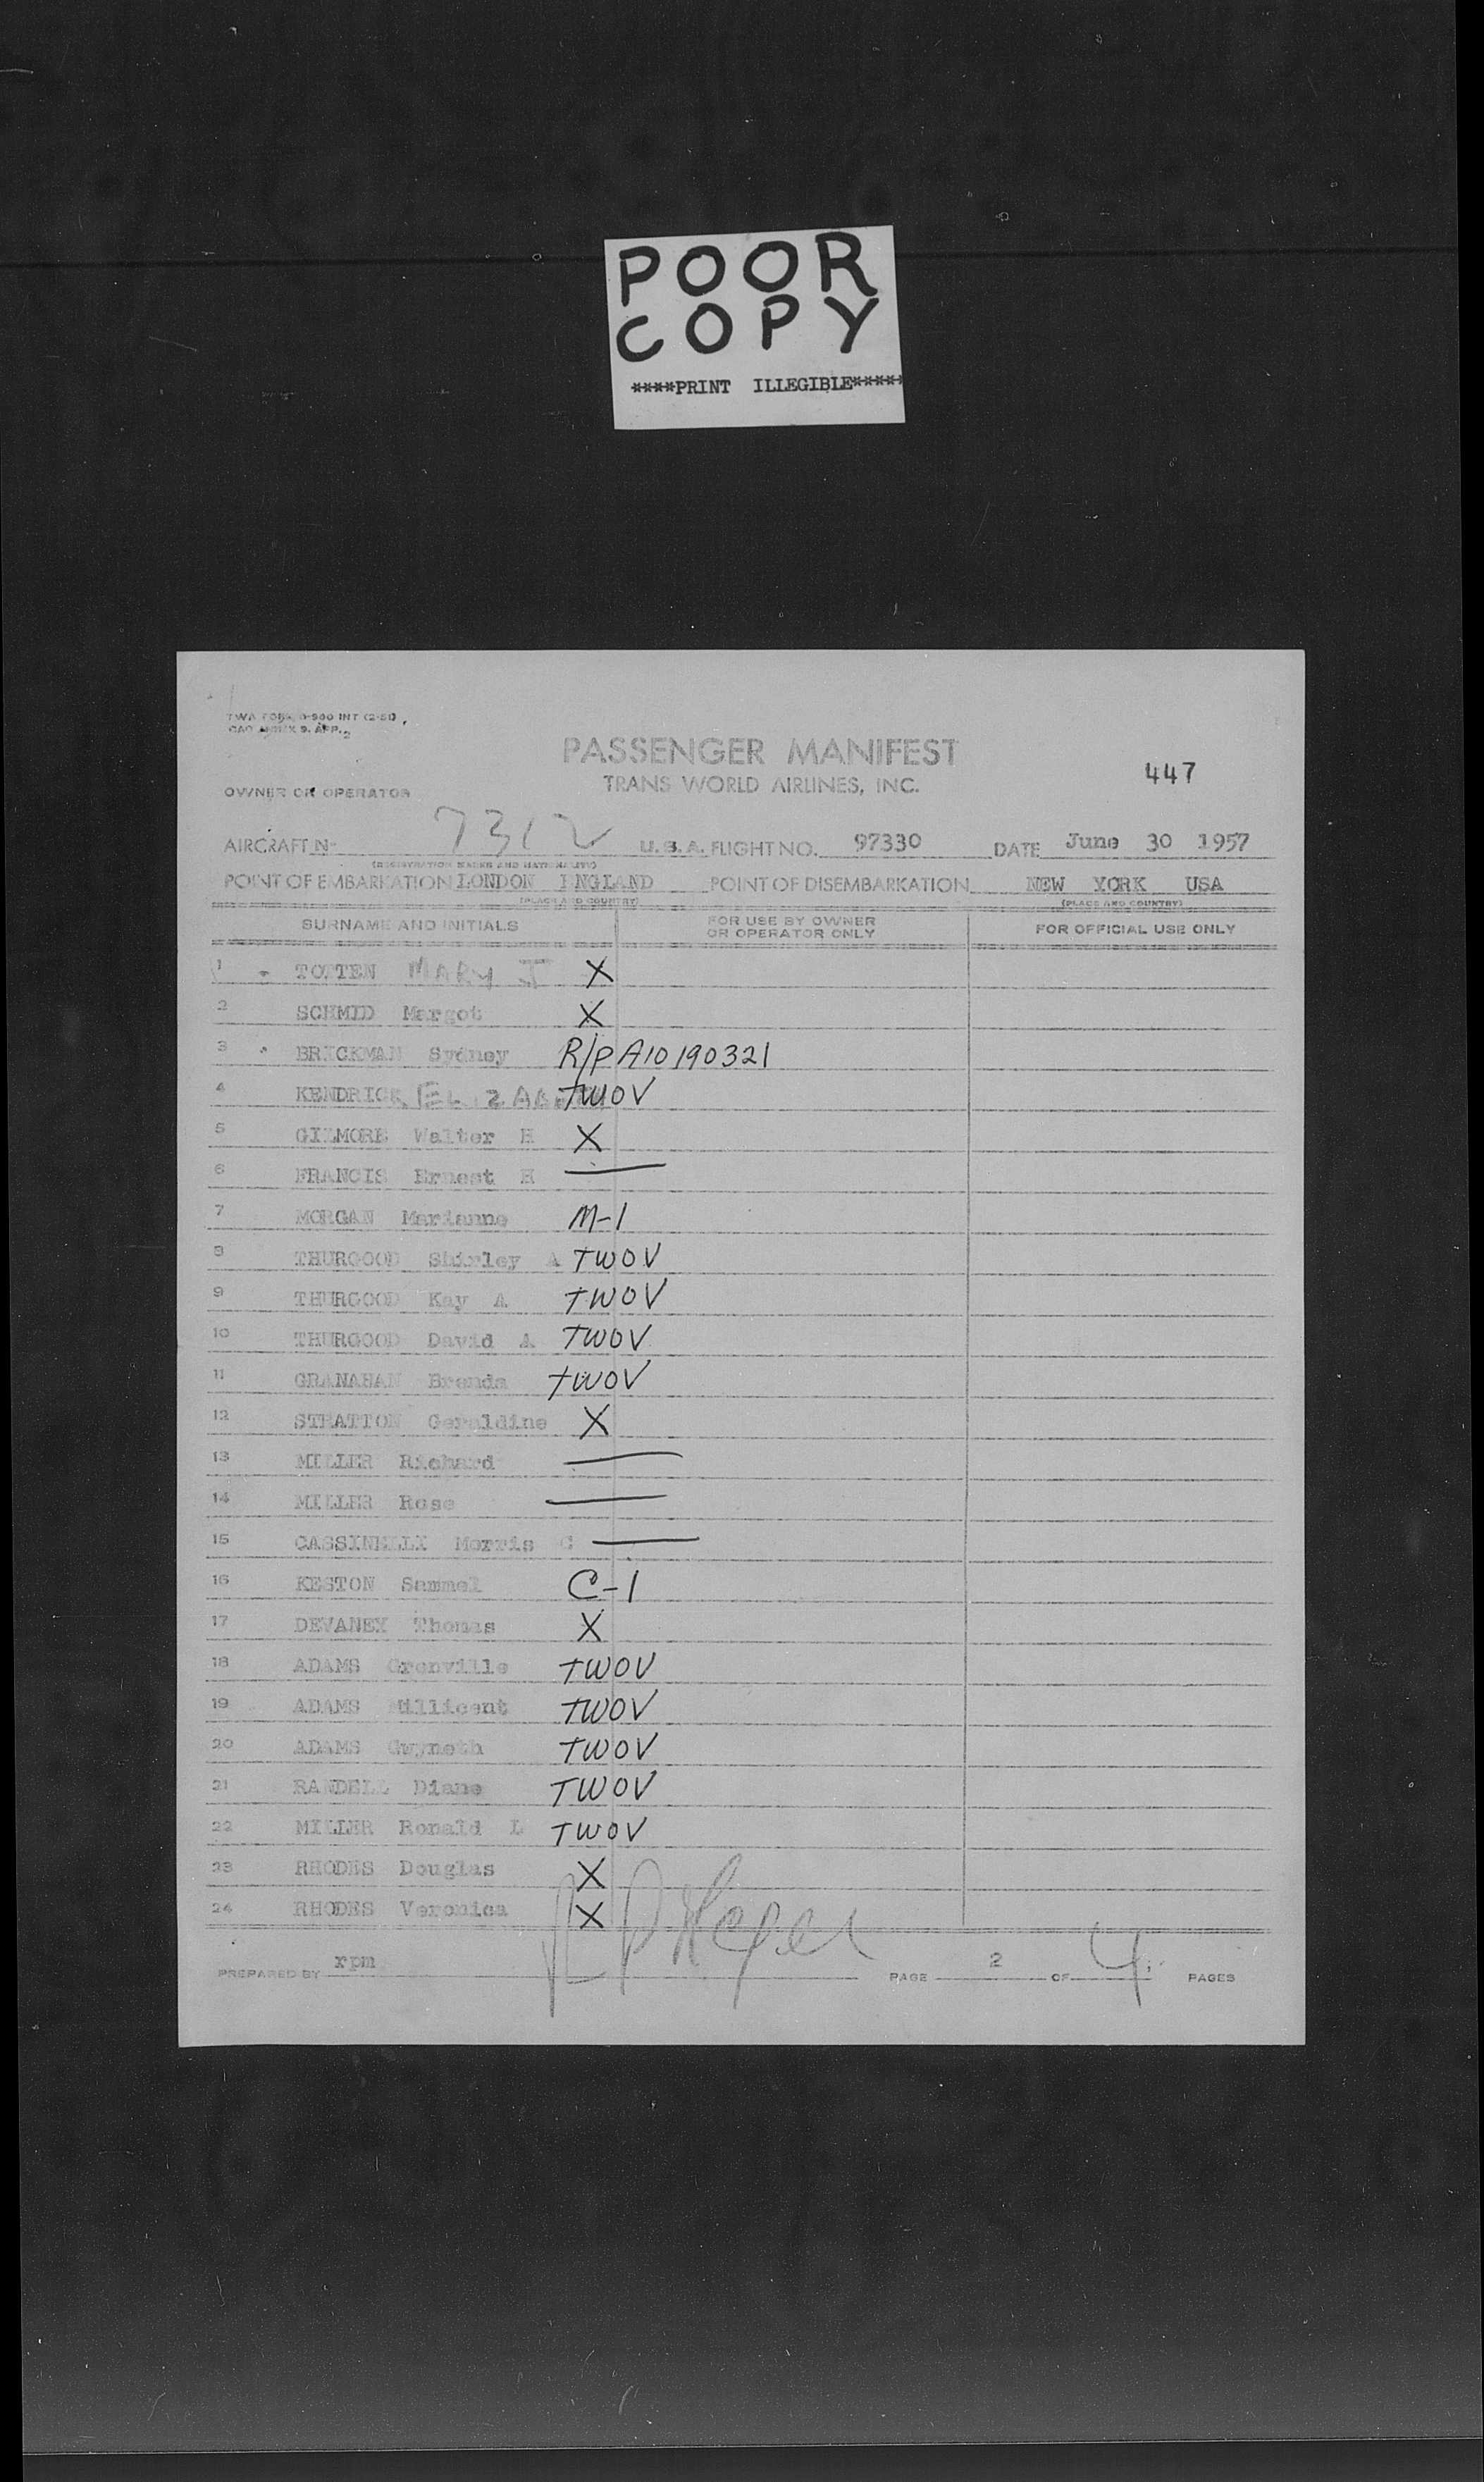 POOR
COPY
****PRINT ILLEGIBLE*****
PASSENGER MANIFEST
447
TRANS WORLD AIRLINES, INC.
OWNER OR OPERATOR
AIRCRAFT N- 7312 U.S.A. FLIGHT NO. 97330 DATE June 30 1957
POINT OF EMBARKATION LONDON ENGLAND POINT OF DISEMBARKATION NEW YORK USA
(PLACE AND COUNTRY) (PLACE AND COUNTRY)
SURNAME AND INITIALS FOR USE BY OWNER OR OPERATOR ONLY FOR OFFICIAL USE ONLY
1 TOTTEN MARY J X
2 SCHMID Margot X
3 BRICKMAN Sydney R/P A10190321
4 KENDRICK TWOV
5 GILMORE Walter H X
6 FRANCIS Ernest H —
7 MORGAN Marianne M-1
8 THURGOOD Shirley A TWOV
9 THURGOOD Kay A TWOV
10 THURGOOD David A TWOV
11 GRANAHAN Brenda TWOV
12 STRATTON Geraldine X
13 MILLER Richard —
14 MILLER Rose —
15 CASSINELLI Morris C —
16 KESTON Sammel C-1
17 DEVANEY Thomas X
18 ADAMS Grenville TWOV
19 ADAMS Millicent TWOV
20 ADAMS Gwyneth TWOV
21 RANDELL Diane TWOV
22 MILLER Ronald L TWOV
23 RHODES Douglas X
24 RHODES Veronica X
PREPARED BY rpm PAGE 2 OF 4 PAGES